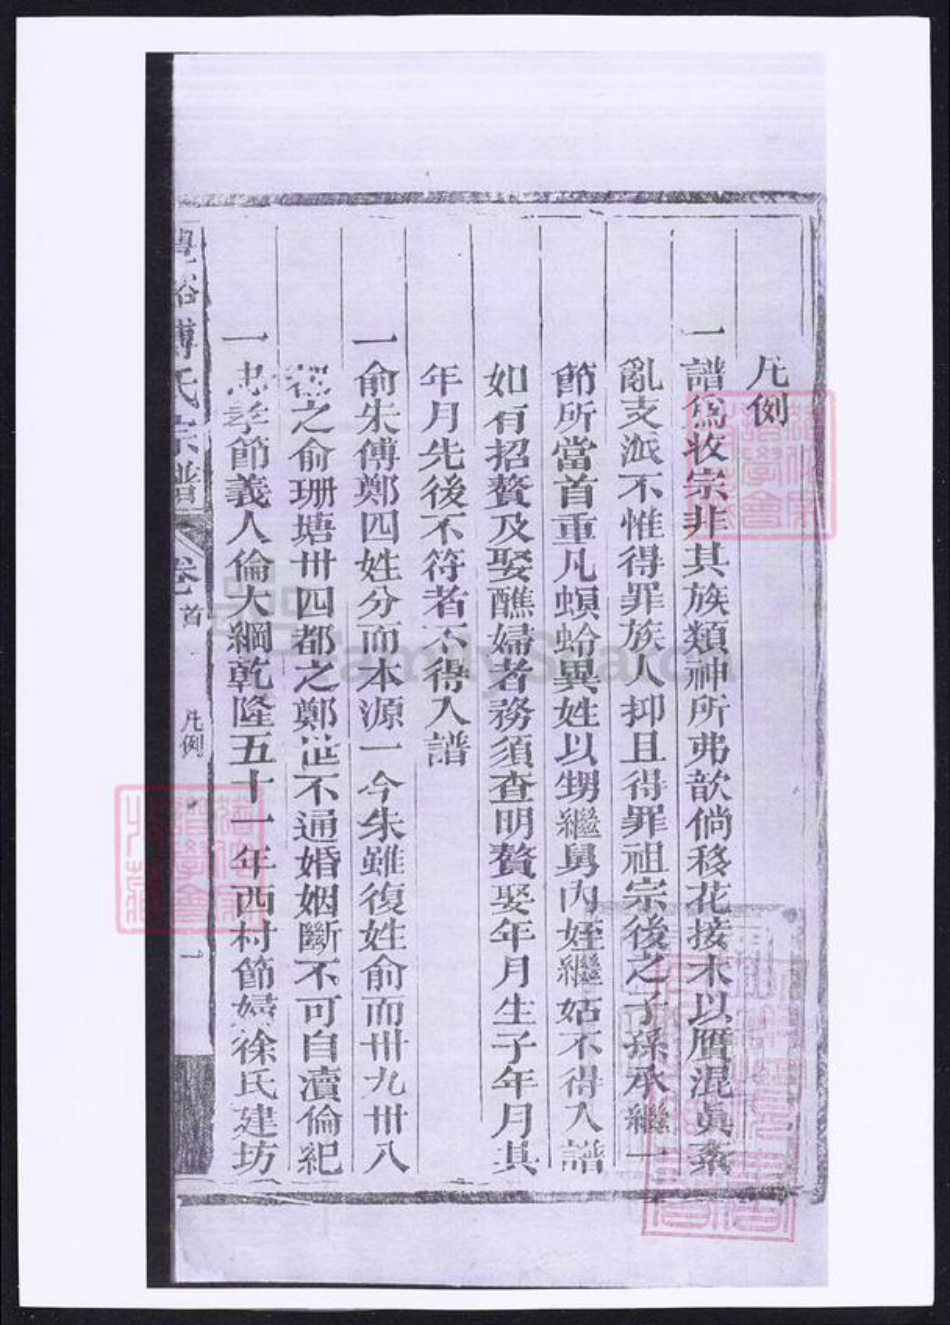 凡例
一譜爲收宗非其族類神所弗歆倘移花接木以贋混眞紊
亂支派不惟得罪族人抑且得罪祖宗後之子孫承繼一
節所當首重凡螟蛉異姓以甥繼舅內姪繼姑不得入譜
如有招贅及娶醮婦者務須查明贅娶年月生子年月其
年月先後不符者不得入譜
一俞朱傅鄭四姓分而本源一今朱雖復姓俞而卅九卅八
都之俞珊塘卅四都之鄭並不通婚姻斷不可自瀆倫紀
一忠孝節義人倫大綱乾隆五十一年西村節婦徐氏建坊
傅氏宗譜 卷首 凡例 一
FamilySearch